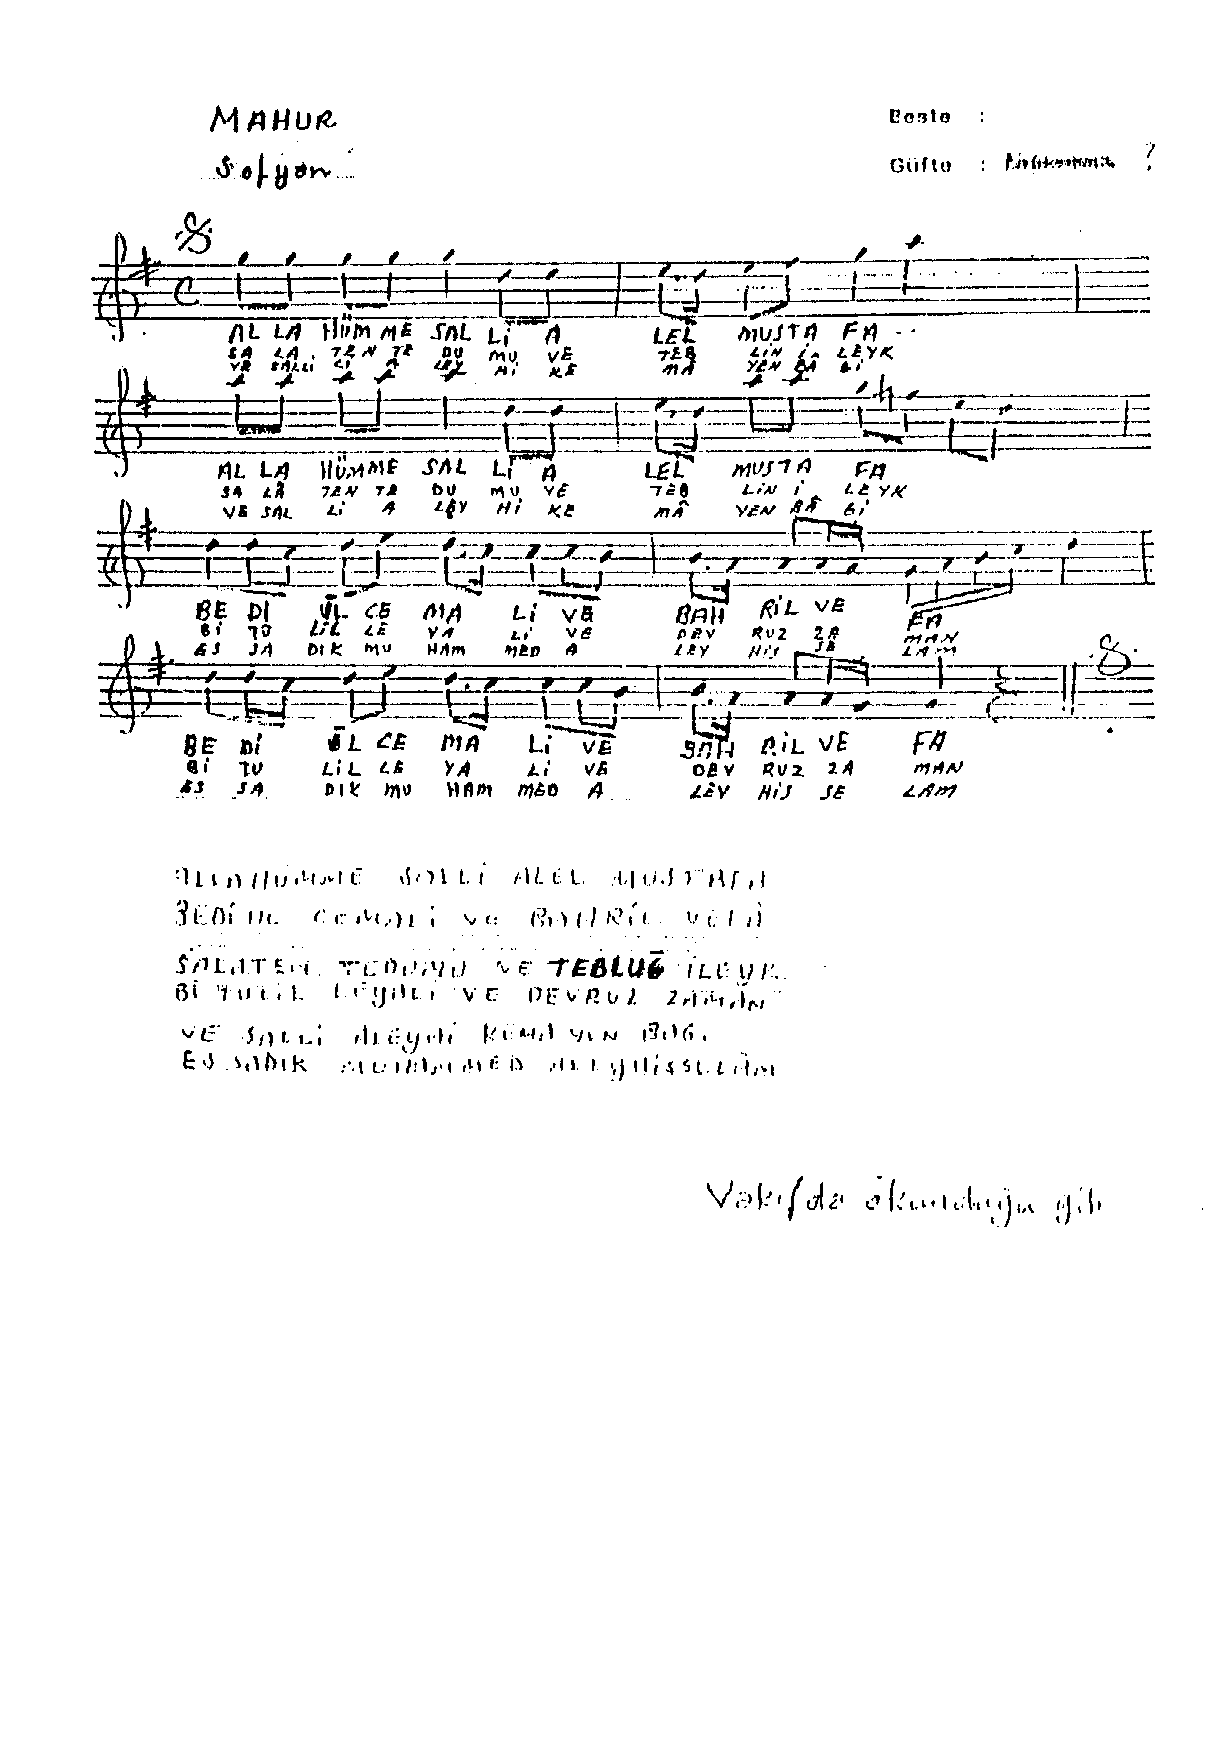 MAHUR
Beste :
Sofyan
Güfte : ?
AL LA HÜM ME SAL Lİ A LEL MUSTA FA
SA LA TEN TE DU MU VE TEB LİN İ LEYK
VE SALLİ Lİ A LEY Hİ KE MA YEN BA Gİ
AL LA HÜMME SAL Lİ A LEL MUSTA FA
SA LÂ TEN TE DU MU VE TEB LİN İ LEYK
VE SAL Lİ A LEY Hİ KE MÂ YEN BÂ Gİ
BE Dİ ÜL CE MA Lİ VE BAH RİL VE FA
Bİ TU LİL LE YA Lİ VE DEV RUZ ZA MAN
ES SA DIK MU HAM MED A LEY HİS SE LAM
BE Dİ ÜL CE MA Lİ VE BAH RİL VE FA
Bİ TU LİL LE YA Lİ VE DEV RUZ ZA MAN
ES SA DIK MU HAM MED A LEY HİS SE LAM
ALLAHÜMME SALLİ ALEL MUSTAFA
BEDİÜL CEMALİ VE BAHRİL VEFÂ
SALATEN TEDUMU VE TEBLUĞ İLEYK
Bİ TULİL LEYALİ VE DEVRUZ ZAMÂN
VE SALLİ ALEYHİ KEMA YEN BAGİ
ES SADIK MUHAMMED ALEYHİSSELÂM
Vakıfda okunduğu gib